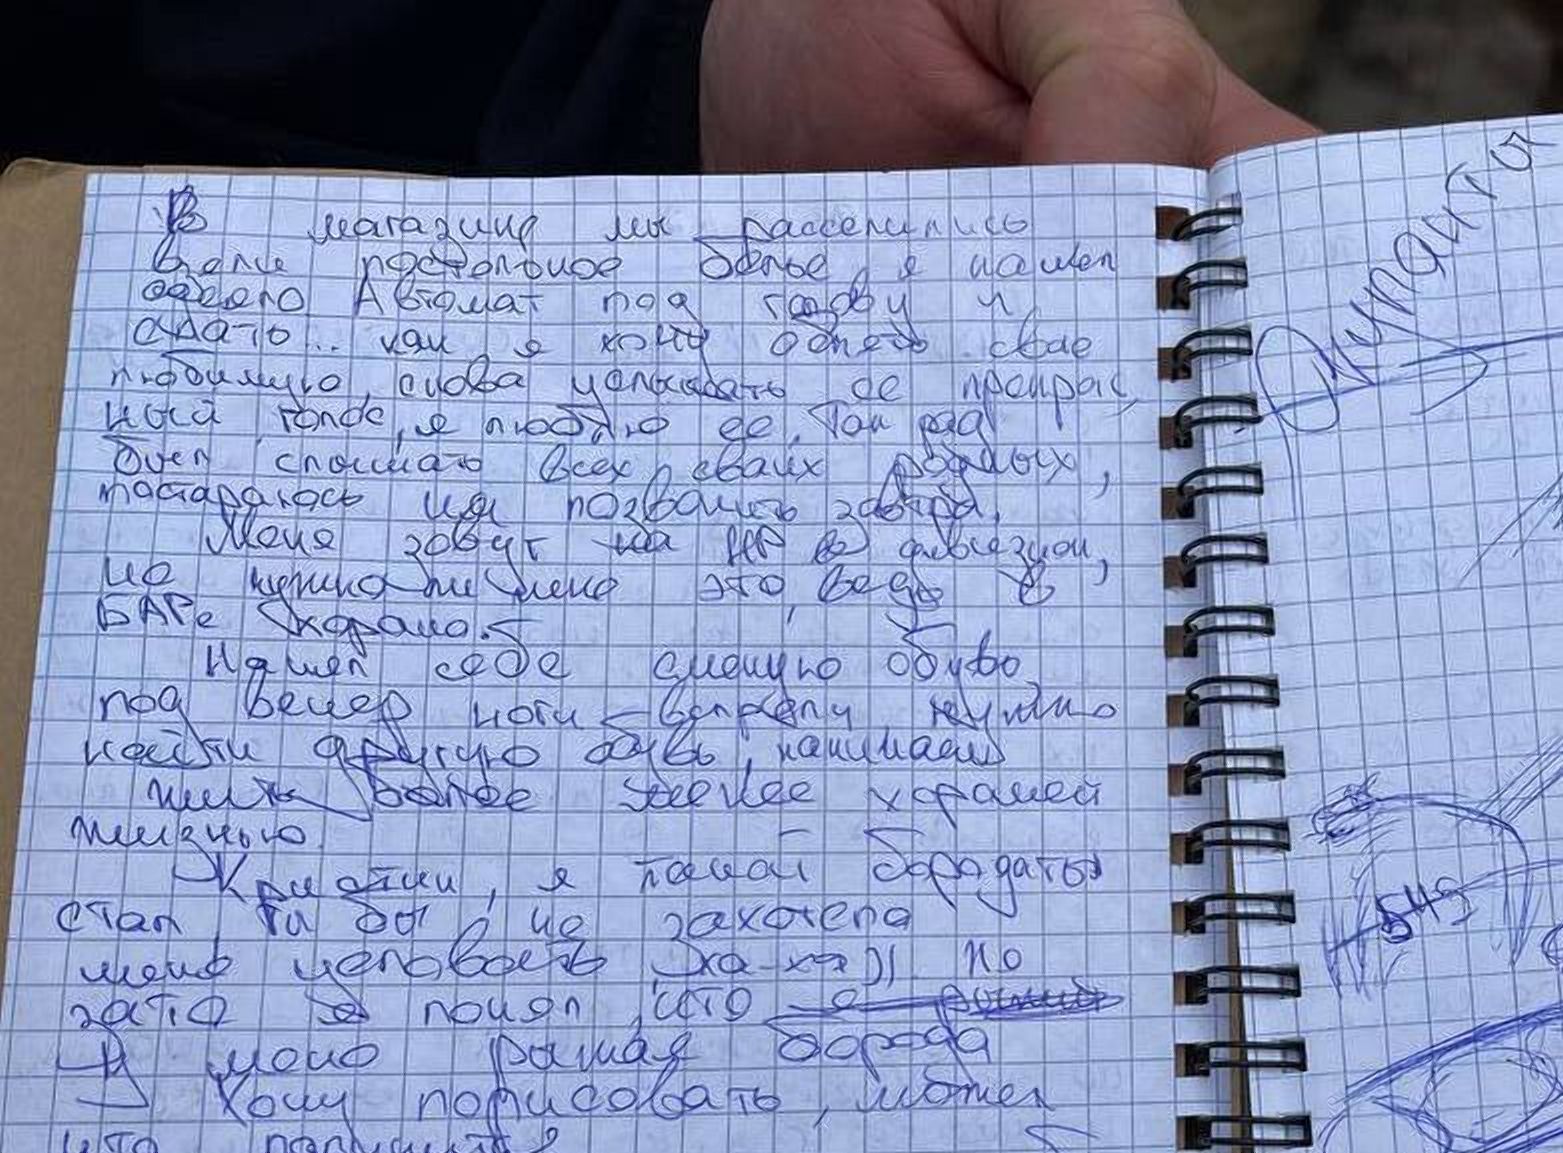 В магазине мы расселились
взяли постельное бельё я нашел
одеяло Автомат под голову и
спать... как я хочу обнять свае
любимую, снова услышать ее прекрас
ный голос, я люблю ее. Так рад
был слышать всех сваих родных,
постараюсь им позвонить завтра.
Меня зовут на НП в
не нужно ли мене это, ведь в
БАРе харашо.
Нашел себе сменую обувь,
под вечер ноги вспрели нужно
найти другую обувь, начинаем
жить более менее харашей
жизнью.
я такой барадаты
стал, ти бы не захотела
меня целовать Эха-ха)). Но
зато я понял, что
У меня рыжая борода
Хочу порисовать, может
что получится
Оккупанты